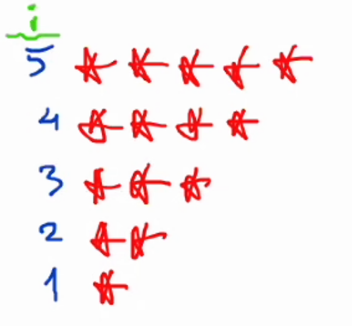 i
5 * * * * *
4 * * * *
3 * * *
2 * *
1 *